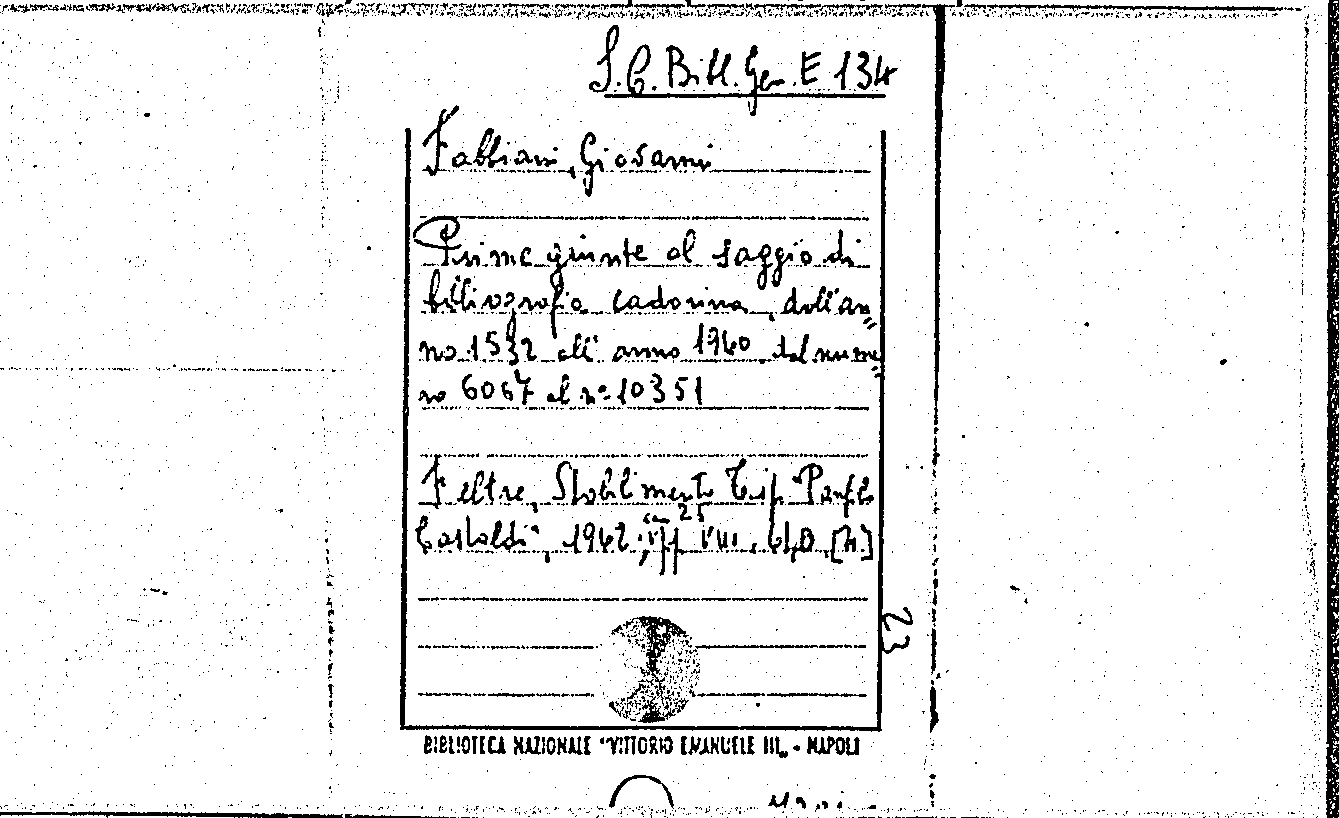 S.C. Bibl. Gen. E 134
Fabbiani, Giovanni
Prime giunte al saggio di
bibliografia cadorina, dall'an=
no 1532 all'anno 1960 dal nume=
ro 6067 al n° 10351
Feltre, Stabilimento Tip. "Panfilo
Castaldi", 1962, 25 pp. VIII,
23
BIBLIOTECA NAZIONALE "VITTORIO EMANUELE III" - NAPOLI